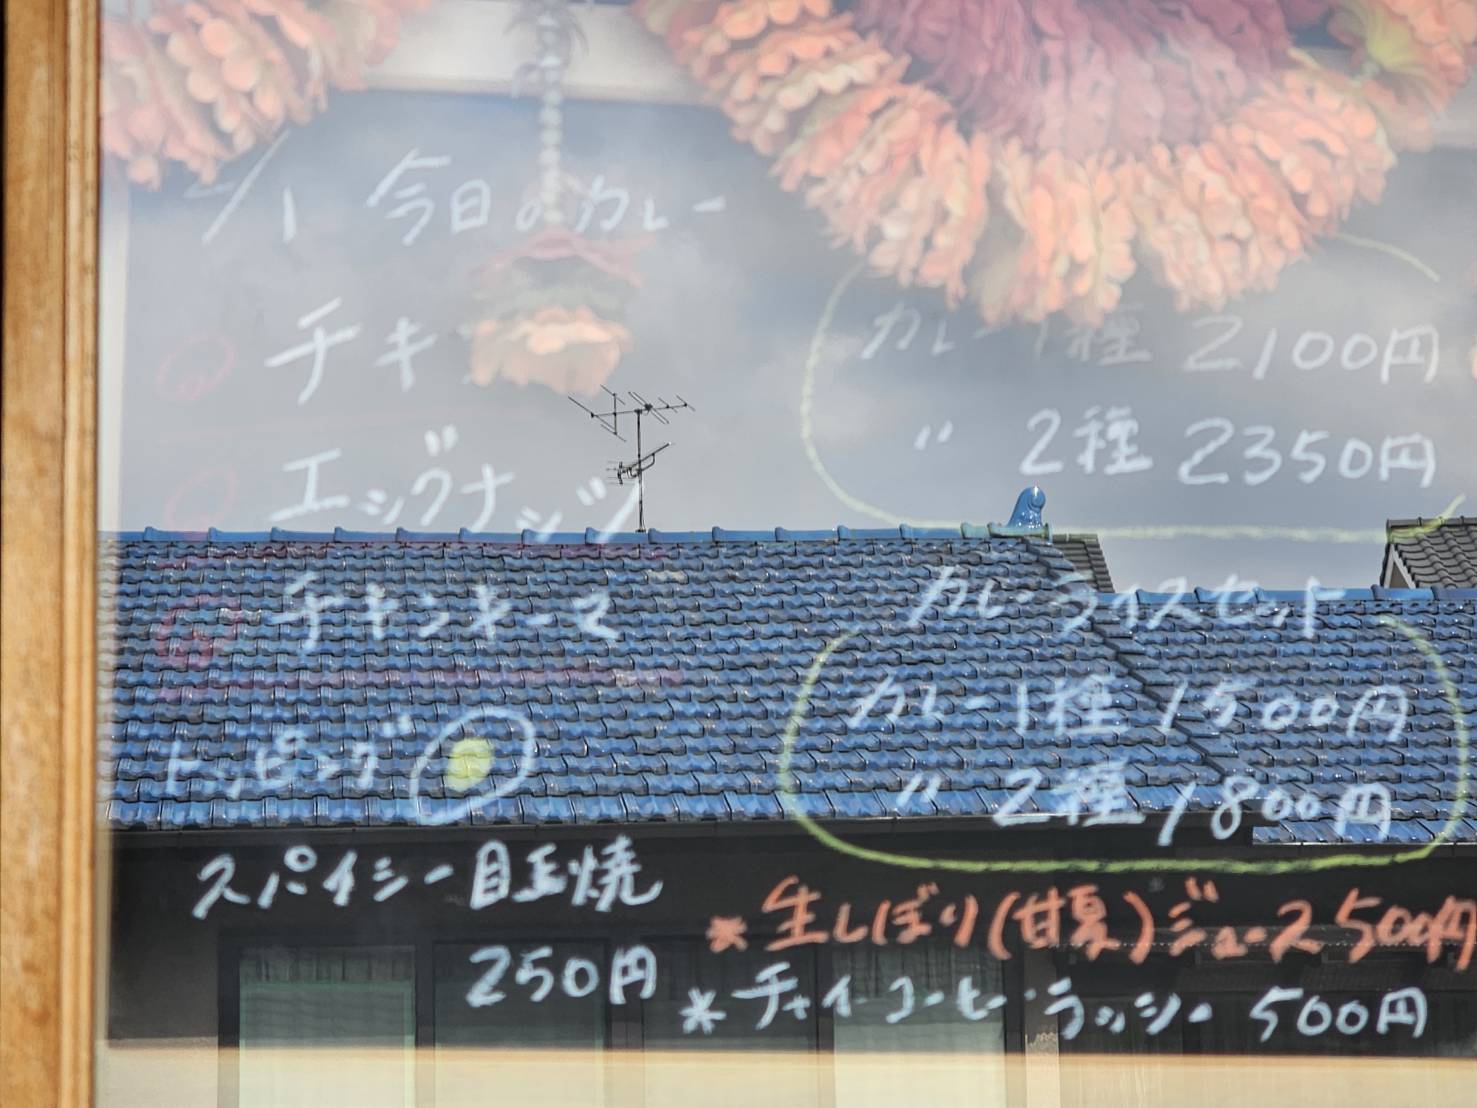 今日のカレー
チキ
エッグナッツ
チキンキーマ
トッピング
スパイシー目玉焼
250円
カレー1種 2100円
〃 2種 2350円
カレーライスセット
カレー1種 1500円
〃 2種 1800円
*生しぼり(甘夏)ジュース500円
*チャイ・コーヒー・ラッシー 500円